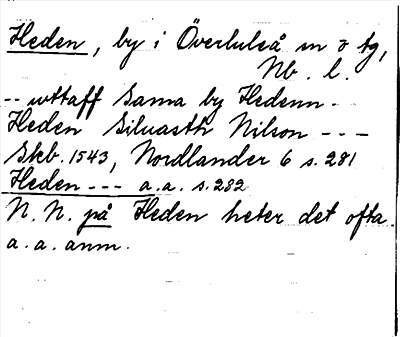 Heden, by i Överluleå sn o tg,
Nb. l.
-- uttaff Sama by Hedenn -
Heden Siluasth Nilson ---
Skb. 1543, Nordlander 6 s. 281
Heden --- a.a. s. 282
N.N. på Heden heter det ofta.
a.a. anm.